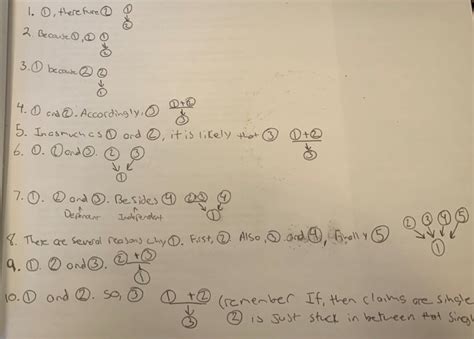 1. ①, therefore ② ① ↓ ②
2. Because ①, ② ① ↓ ②
3. ① because ② ② ↓ ①
4. ① and ②. Accordingly, ③ ①+② ↓ ③
5. Inasmuch as ① and ②, it is likely that ③ ①+② ↓ ③
6. ①. ② and ③. ② ③ ↓ ①
7. ①. ② and ③. Besides ④ ②+③ ④ ↓ ①
Independent
8. There are several reasons why ①. First, ②. Also, ③ and ④, finally ⑤ ② ③ ④ ⑤ ↓ ①
9. ①. ② and ③. ②+③ ↓ ①
10. ① and ②. So, ③ ①+② ↓ ③ (remember If, then claims are single
② is just stuck in between that singl